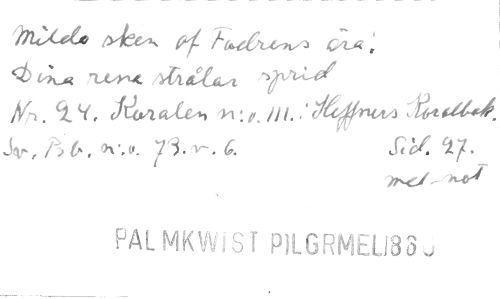 Milda sken af Fadrens ära!
Dina rena strålar sprid
Nr. 24. Koralen n:o. 111. i Hæffners Koralbok.
Sv. Ps b. n:o. 73. v. 6. Sid. 27.
med not
PALMKWIST PILGRMEL 1860